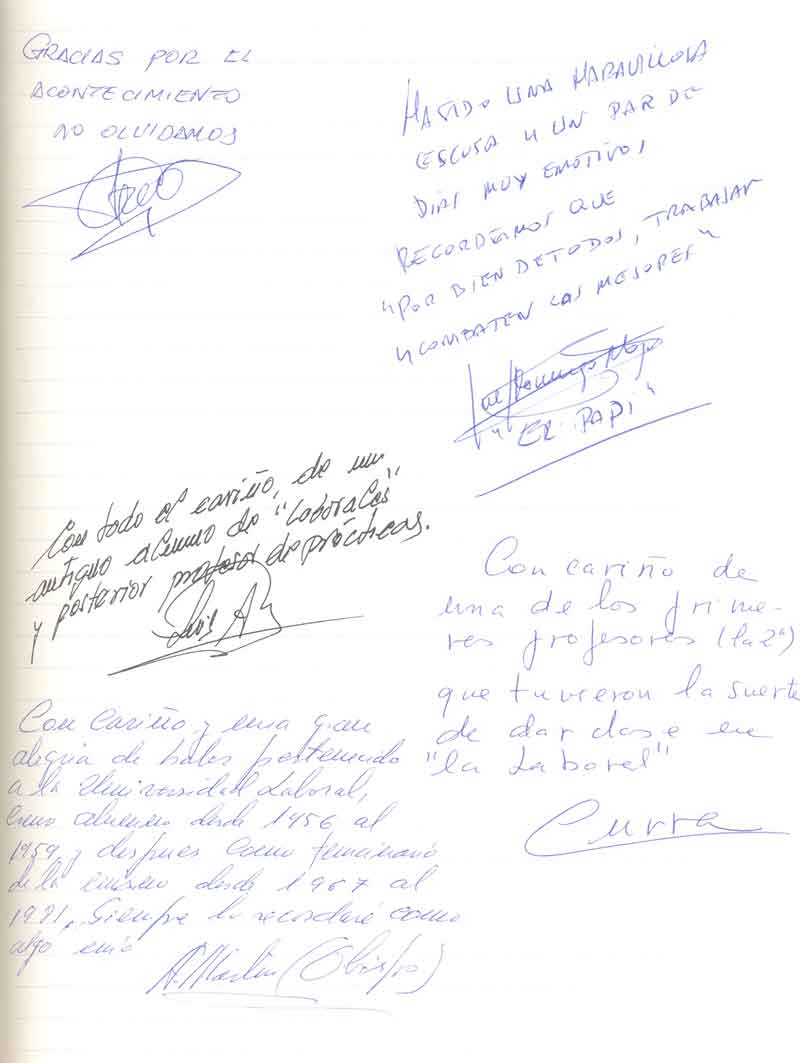 GRACIAS POR EL
ACONTECIMIENTO
NO OLVIDAMOS
HA SIDO UNA MARAVILLOSA
ESCUSA Y UN PAR DE
DIAS MUY EMOTIVOS
RECORDEMOS QUE
"POR BIEN DE TODOS, TRABAJAR
"COMBATEN LAS MEJORES"
"EL PAPI"
Con todo el cariño, de un
antiguo alumno de "Laborales"
y posterior profesor de prácticas.
Luis A
Con cariño de
una de los prime-
res profesores (la 2ª)
que tuvieron la suerte
de dar clase en
"la Laboral"
Curra
Con Cariño y una gran
alegria de haber pertenecido
a la Universidad Laboral,
como alumno desde 1956 al
1959 y despues como funcionario
de la misma desde 1967 al
1991, Siempre la recordaré como
algo mio
A. Martin (Obispo)